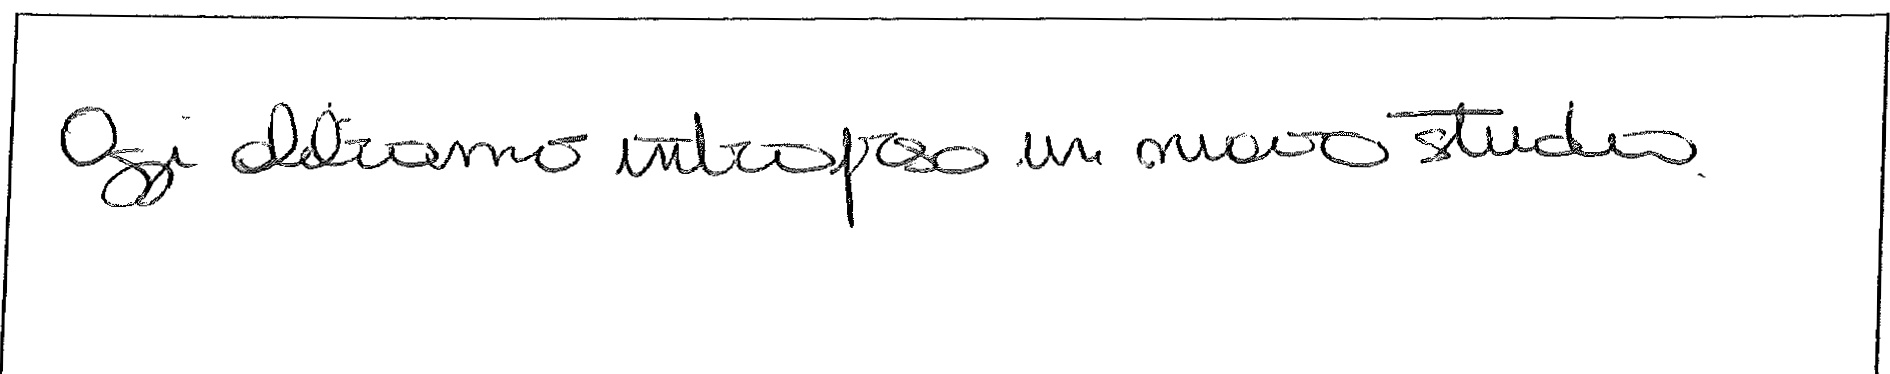 Oggi abbiamo intrapreso un nuovo studio.